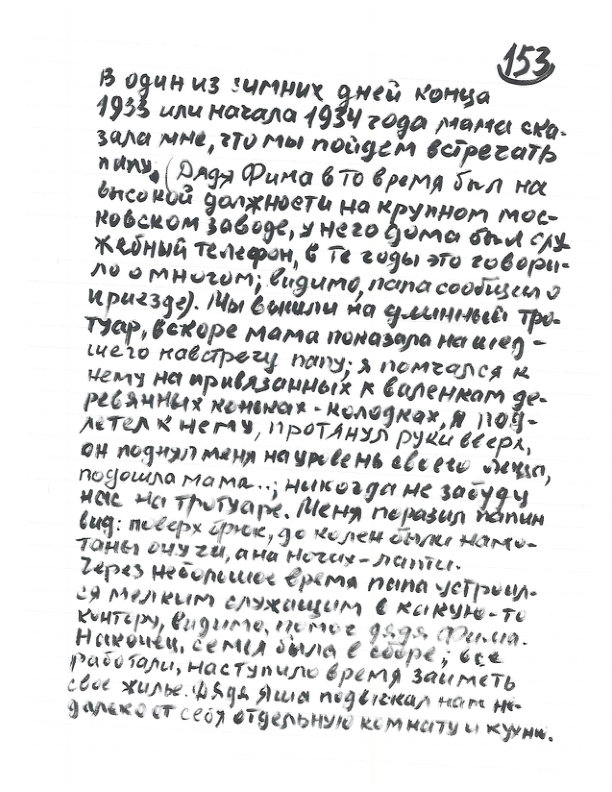 153
В один из зимних дней конца
1933 или начала 1934 года мама ска-
зала мне, что мы пойдем встречать
папу. (Дядя Фима в то время был на
высокой должности на крупном мос-
ковском заводе, у него дома был слу
жебный телефон, в те годы это говори-
ло о многом; видимо, папа сообщил о
приезде). Мы вышли на длинный тро-
туар, вскоре мама показала на шед-
шего навстречу папу; я помчался к
нему на привязанных к валенкам де-
ревянных коньках-колодках, я под-
летел к нему, протянул руки вверх,
он поднял меня на уровень своего лица,
подошла мама..; никогда не забуду
нас на тротуаре. Меня поразил папин
вид: поверх брюк, до колен были намо-
таны онучи, а на ногах - лапти.
Через небольшое время папа устроил-
ся мелким служащим в какую-то
контору, видимо, помог дядя Фима.
Наконец, семья была в сборе; все
работали, наступило время заиметь
свое жилье. Дядя Яша подыскал нам не-
далеко от себя отдельную комнату и кухню.